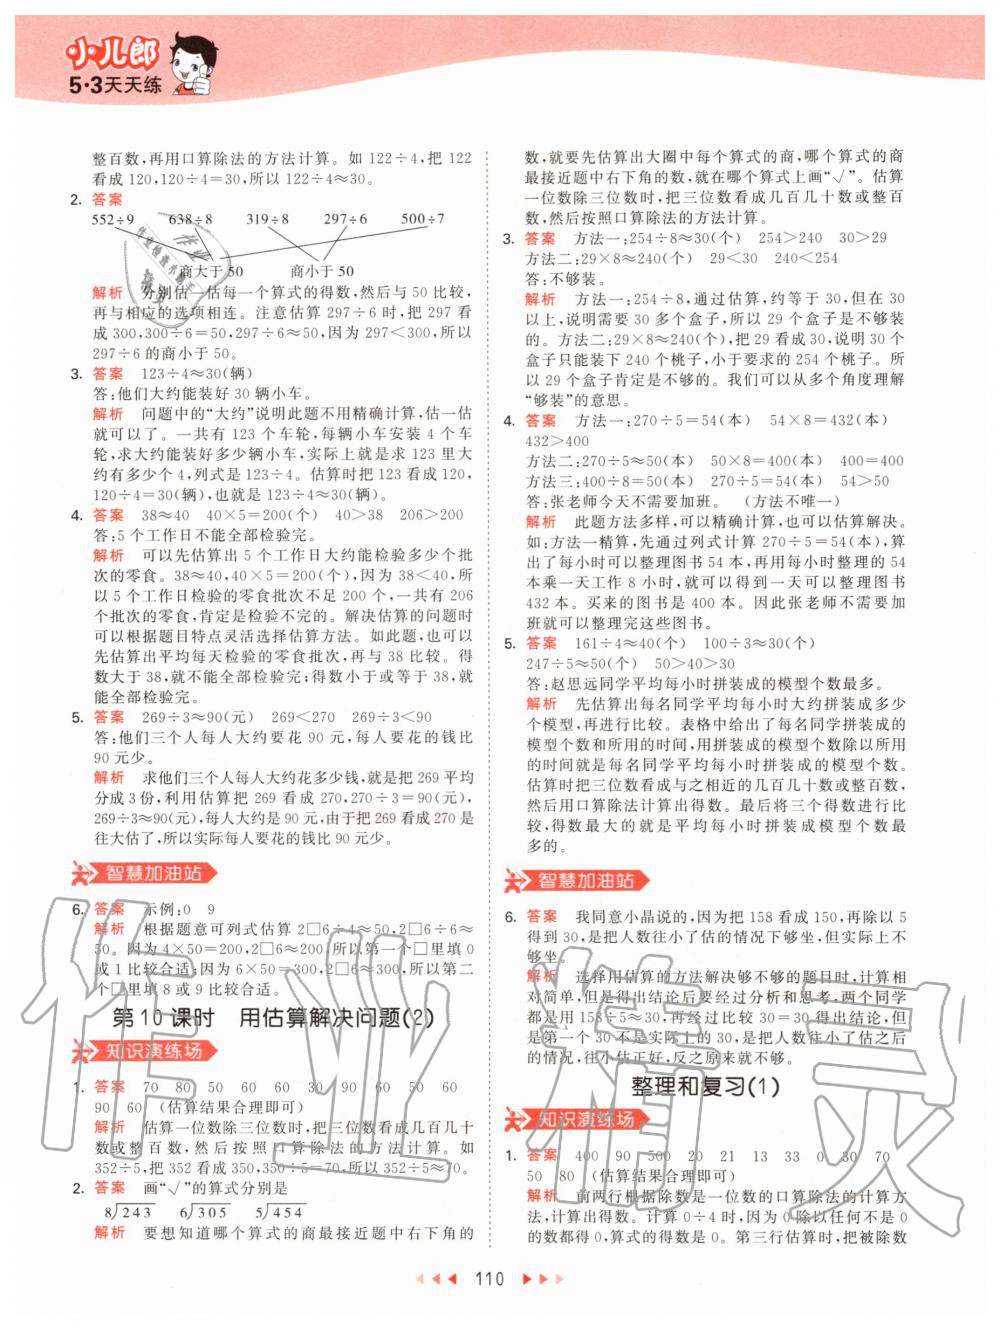 小儿郎
5·3天天练
整百数,再用口算除法的方法计算。如 122÷4,把 122
看成 120,120÷4=30,所以 122÷4≈30。
2. 答案
552÷9 638÷8 319÷8 297÷6 500÷7
商大于 50 商小于 50
解析 分别估一估每一个算式的得数,然后与 50 比较,
再与相应的选项相连。注意估算 297÷6 时,把 297 看
成 300,300÷6=50,297÷6≈50,因为 297<300,所以
297÷6 的商小于 50。
3. 答案 123÷4≈30(辆)
答:他们大约能装好 30 辆小车。
解析 问题中的“大约”说明此题不用精确计算,估一估
就可以了。一共有 123 个车轮,每辆小车安装 4 个车
轮,求大约能装好多少辆小车,实际上就是求 123 里大
约有多少个 4,列式是 123÷4。估算时把 123 看成 120,
120÷4=30(辆),也就是 123÷4≈30(辆)。
4. 答案 38≈40 40×5=200(个) 40>38 206>200
答:5 个工作日不能全部检验完。
解析 可以先估算出 5 个工作日大约能检验多少个批
次的零食。38≈40,40×5=200(个),因为 38<40,所
以 5 个工作日检验的零食批次不足 200 个,一共有 206
个批次的零食,肯定是检验不完的。解决估算的问题时
可以根据题目特点灵活选择估算方法。如此题,也可以
先估算出平均每天检验的零食批次,再与 38 比较。得
数大于 38,就不能全部检验完;得数小于或等于 38,就
能全部检验完。
5. 答案 269÷3≈90(元) 269<270 269÷3<90
答:他们三个人每人大约要花 90 元,每人要花的钱比
90 元少。
解析 求他们三个人每人大约花多少钱,就是把 269 平均
分成 3 份,利用估算把 269 看成 270,270÷3=90(元),
269÷3≈90(元),每人大约是 90 元,由于把 269 看成 270 是
往大估了,所以实际每人要花的钱比 90 元少。
智慧加油站
6. 答案 示例:0 9
解析 根据题意可列式估算 2□6÷4≈50,2□6÷6≈
50。因为 4×50=200,2□6≈200,所以第一个□里填 0
或 1 比较合适;因为 6×50=300,2□6≈300,所以第二
个□里填 8 或 9 比较合适。
第 10 课时 用估算解决问题(2)
知识演练场
1. 答案 70 80 50 60 60 30 90 60 50 60
90 60 (估算结果合理即可)
解析 估算一位数除三位数时,把三位数看成几百几十
数或整百数,然后按照口算除法的方法计算。如
352÷5,把 352 看成 350,350÷5=70,所以 352÷5≈70。
2. 答案 画“√”的算式分别是
8)243 6)305 5)454
解析 要想知道哪个算式的商最接近题中右下角的
数,就要先估算出大圈中每个算式的商,哪个算式的商
最接近题中右下角的数,就在哪个算式上画“√”。估算
一位数除三位数时,把三位数看成几百几十数或整百
数,然后按照口算除法的方法计算。
3. 答案 方法一:254÷8≈30(个) 254>240 30>29
方法二:29×8≈240(个) 29<30 240<254
答:不够装。
解析 方法一:254÷8,通过估算,约等于 30,但在 30
以上,说明需要 30 多个盒子,所以 29 个盒子是不够装
的。方法二:29×8≈240(个),把 29 看成 30,说明 30 个
盒子只能装下 240 个桃子,小于要求的 254 个桃子。所
以 29 个盒子肯定是不够的。我们可以从多个角度理解
“够装”的意思。
4. 答案 方法一:270÷5=54(本) 54×8=432(本)
432>400
方法二:270÷5≈50(本) 50×8=400(本) 400=400
方法三:400÷8=50(本) 270÷5=54(本) 54>50
答:张老师今天不需要加班。 (方法不唯一)
解析 此题方法多样,可以精确计算,也可以估算解决。
如:方法一精算,先通过列式计算 270÷5=54(本),算
出了每小时可以整理图书 54 本,再用每小时整理的 54
本乘一天工作 8 小时,就可以得到一天可以整理图书
432 本。买来的图书是 400 本。因此张老师不需要加
班就可以整理完这些图书。
5. 答案 161÷4≈40(个) 100÷3≈30(个)
247÷5≈50(个) 50>40>30
答:赵思远同学平均每小时拼装成的模型个数最多。
解析 先估算出每名同学平均每小时大约拼装成多少
个模型,再进行比较。表格中给出了每名同学拼装成的
模型个数和所用的时间,用拼装成的模型个数除以所用
的时间就是每名同学平均每小时拼装成的模型个数。
估算时把三位数看成与之相近的几百几十数或整百数,
然后用口算除法计算出得数。最后将三个得数进行比
较,得数最大的就是平均每小时拼装成模型个数最
多的。
智慧加油站
6. 答案 我同意小晶说的,因为把 158 看成 150,再除以 5
得到 30,是把人数往小了估的情况下够坐,但实际上不
够坐。
解析 选择用估算的方法解决够不够的题目时,计算相
对简单,但是得出结论后要经过分析和思考,两个同学
都是用 158÷5≈30,再经过比较 30=30 得出结论,但
是第一个 30 不是实际上的 30,是把人数往小了估之后
的情况,往小估正好,反之原来就不够。
整理和复习(1)
知识演练场
1. 答案 400 90 500 20 21 13 33 0 30 70
50 80 (估算结果合理即可)
解析 前两行根据除数是一位数的口算除法的计算方
法,计算出得数。计算 0÷4 时,因为 0 除以任何不是 0
的数都得 0,算式的得数是 0。第三行估算时,把被除数
110
作业精灵